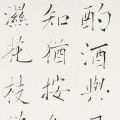 酌酒與
知猶按
濕花枝